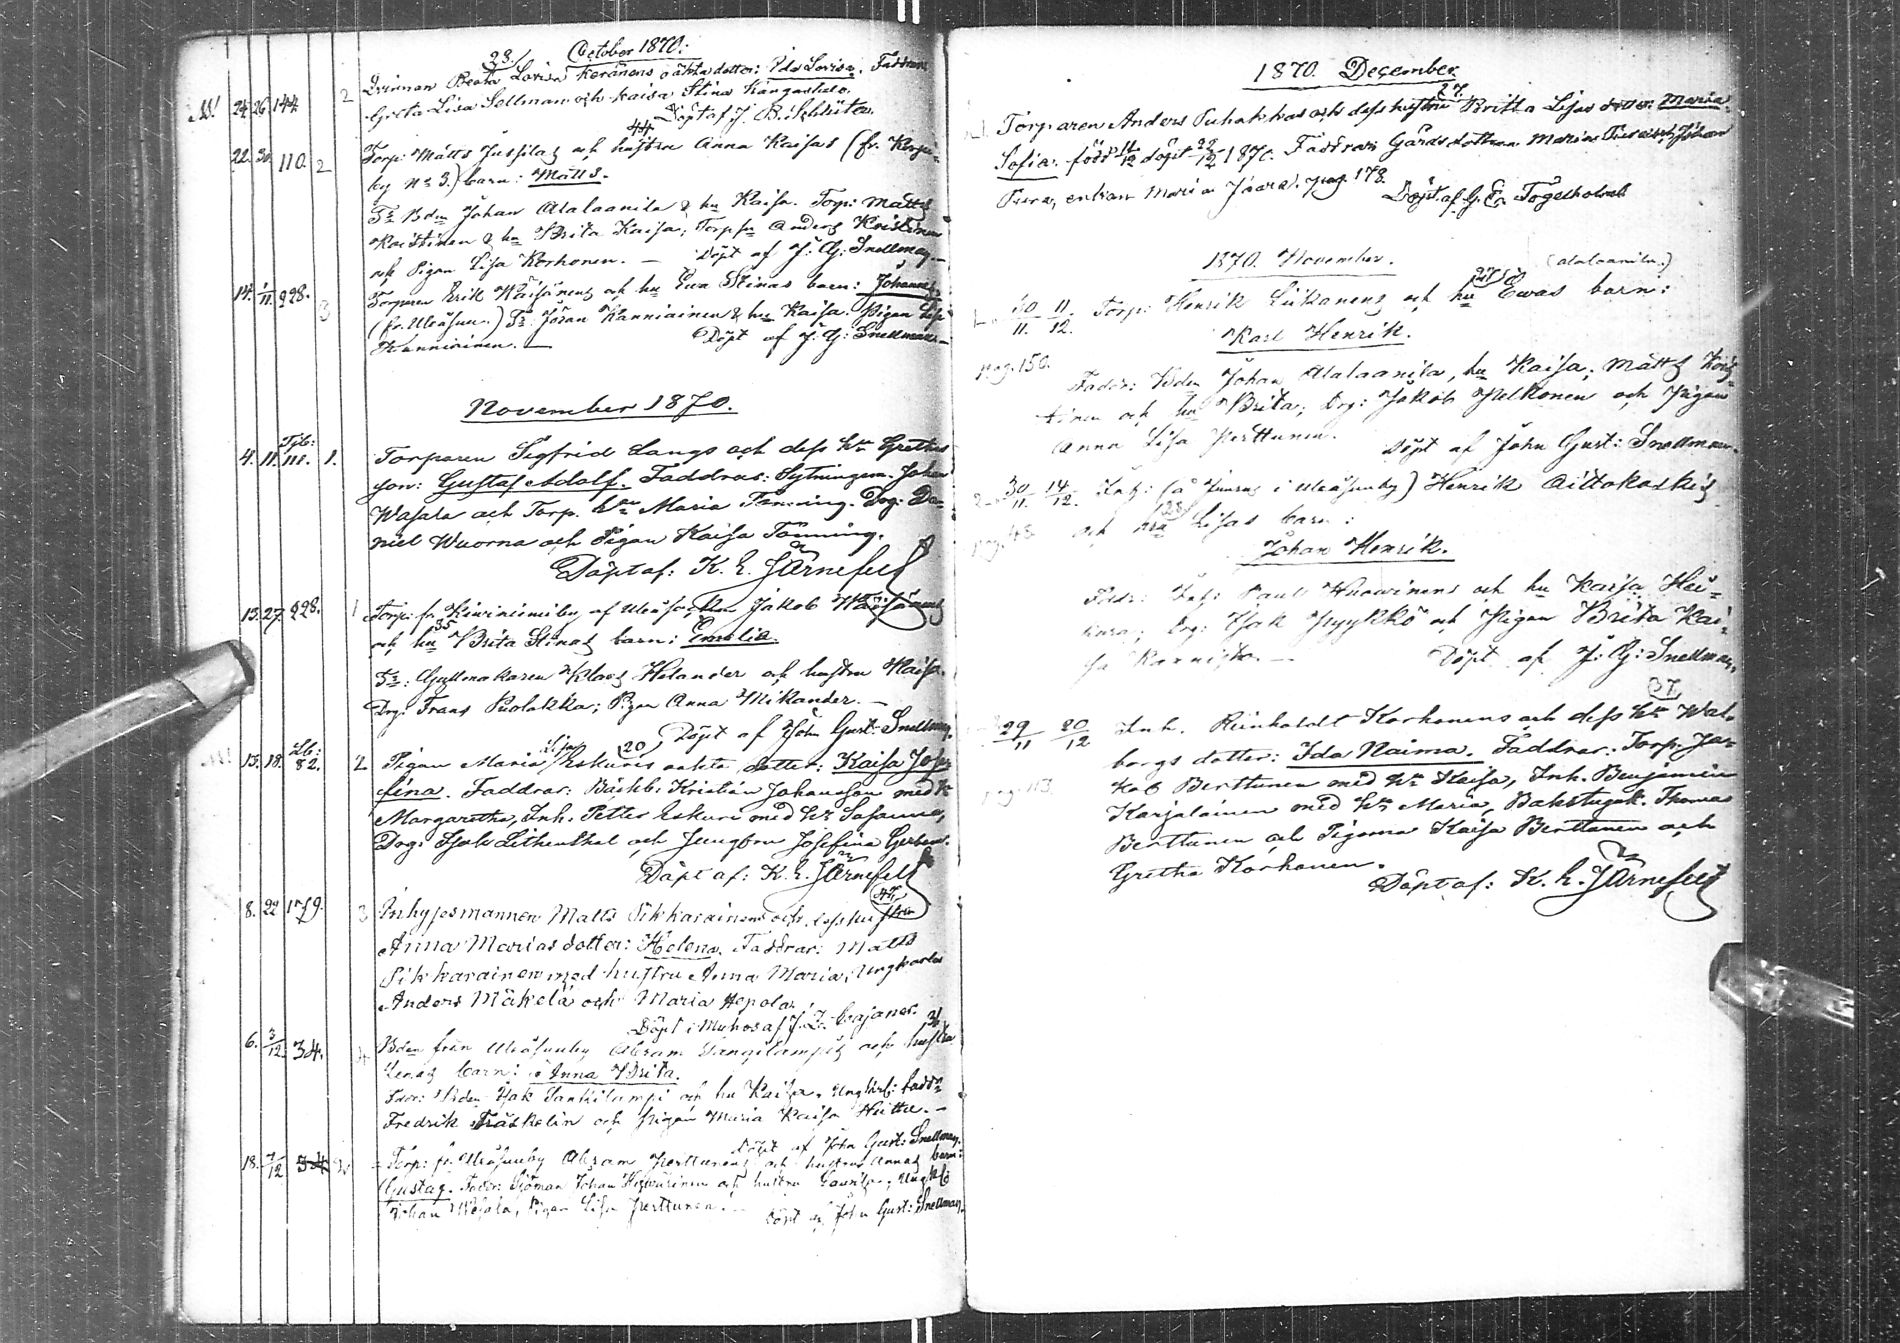 October 1870.
23.
N! 24 26 144 2 Qvinnan Beata Lovisa Keränens oäkta dotter: Ida Lovisa. Faddrar
Greta Lisa Sellman och Kaisa Stina Kangashalo.
Döpt af J. B. Schlüter.
44
22. 30. 110. 2 Torp: Matts Jussilas och hustru Anna Kaisas (fr.
by No 3.) barn: Matts.
Fr Bdn Johan Alalaanila & hu Kaisa. Torp: Matts
Kristinen & hu Brita Kaisa; Torp Anders Kristinen
och Pigan Lisa Korhonen. — Döpt af J. G: Snellman.
14. 1/11. 928. 3 Torparen Erik Wäisänens och hu Ewa Stinas barn: Johannes
(fr. Uleåsuu.) Fr: Johan Kanniainen & hu Kaisa. Pigan Lisa
Kanniainen. — Döpt af J. G: Snellman.
November 1870.
4. 11. Tjb: 111. 1. Torparen Sigfrid Langs och dess hu Grethas
son: Gustaf Adolf. Faddrar: Sytningsm. Johan
Wasara och Torp. hu Maria Tönning. Drg: Da-
niel Wuorna och Pigan Kaisa Tönning.
Döpt af: K. E. Järnefelt
13. 27. 928. 1 Torp: fr. Kiwiniemi by af Uleåsocken Jakob Wäisänens
35
och hu Brita Stinas barn: Emelia.
Fr: Gästmakaren Klas Helander och hustru Kaisa.
Drg: Frans Puolakka; Pign Anna Mikander. —
Döpt af John Gust: Snellman.
13. 18. Lb: 82. 2 Pigan Maria Lisa Eskuris oäkta (20) dotter: Kaisa Jose-
fina. Faddrar: Bäckb: Kristian Johansson med hu
Margaretha, Inh. Petter Eskuri med hu Susanna,
Drg: Isak Lithenthal och Jungfru Josefina Gerben.
Döpt af: K. E. Järnefelt
47.
8. 22 179. 3 Inhysesmannen Matts Sikkarainens och dess hustru
Anna Marias dotter: Helena. Faddrar: Matts
Sikkarainen med hustru Anna Maria; Ungkarlen
Anders Mäkelä och Maria Hepola.
Döpt i Muhos af J. L. Cajaner.
6. 3/12. 34. 4 Bdn från Uleåsuuby Abram Sangilampis och hustru
Lenas barn: Anna Brita.
Fddr: Bden Isak Sankilampi och hu Kaisa. Ungkrl:
Fredrik Träskelin och Pigan Maria Kaisa Hietta. —
Döpt af John Gust: Snellman.
18. 7/12 34 Torp: fr. Uleåsuuby Abram Perttunens och hustrus Annas barn:
Gustaf. Faddr: Sjöman Johan och hustru
Johan Wesala, Pigan Lisa Perttunen. — Döpt af John Gust: Snellman.
1870. December.
27.
Torparen Anders Puhakkas och dess hustru Britta Lisas dotter: Maria
Sofia. född 14/12 döpt 22/12 1870. Faddrar: Gårds dottren Maria Pura och Johan
Pura, enkan Maria Jaara. pag. 178.
Döpt af G. E. Fogelholm
1870. November.
(Alalaanila.)
27
30/11. 11/12. Torp: Henrik Liikanens och hu Ewas barn:
Karl Henrik.
pag. 150.
Faddr: Bden Johan Alalaanila, hu Kaisa; Matts Kris-
tinen och hu Brita; Drg: Jakob Pelkonen och Pigan
Anna Lisa Perttunen. Döpt af John Gust: Snellman.
2. 30/11 14/12. Inh: (å i Uleåsuuby) Henrik Aittokoskis
28
pag. 48. och hru Lisas barn:
Johan Henrik.
Fddr: Inh: Paul Huowinens och hu Kaisa Hei-
kura; Drg: Isak Pyykkö och Pigan Brita Kai-
sa Karnista. — Döpt af J: G: Snellman.
37.
29/11 20/12 Inh. Reinholdt Korhonens och dess hu Wal-
borgs dotter: Ida Naima. Faddrar: Torp: Ja-
kob Berttunen med hu Kaisa, Inh. Benjamin
pag. 113.
Karjalainen med hu Maria, Bakstugsk. Thomas
Berttunen och Pigorna Kaisa Berttunen och
Gretha Korhonen.
Döpt af: K. E. Järnefelt